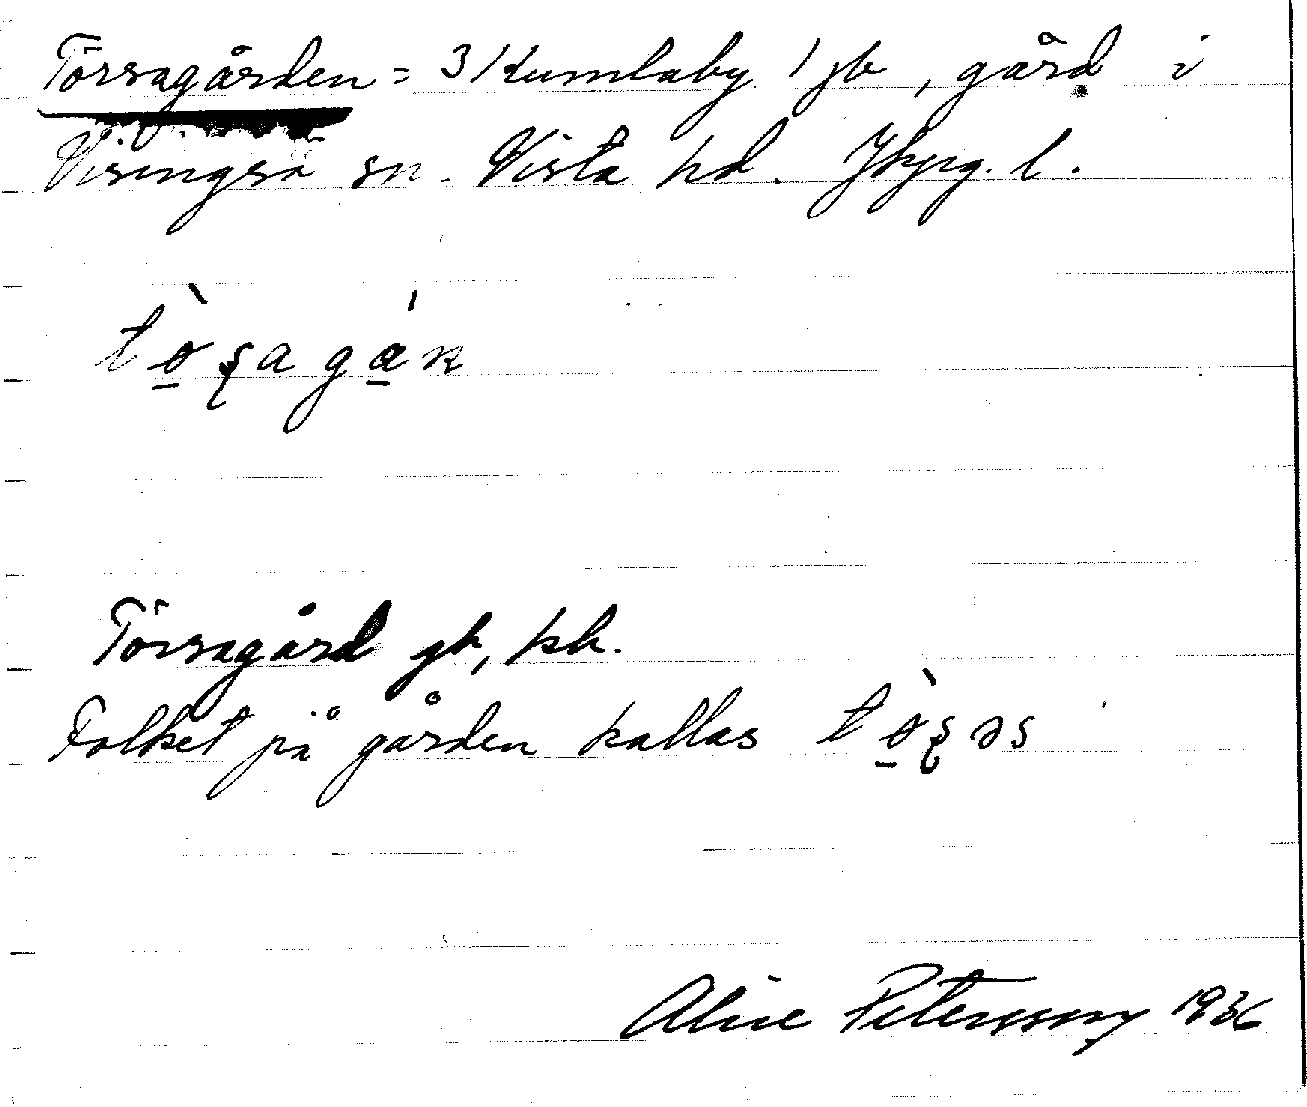 Törsagården = 3 Kumlaby 1 jb, gård i
Visingsö sn. Vista hd. Jkpg. l.
tò̠ʂagá̠n
Törsagård gk, kk.
Folket på gården kallas tò̠ʂəs
Alice Petersson 1936